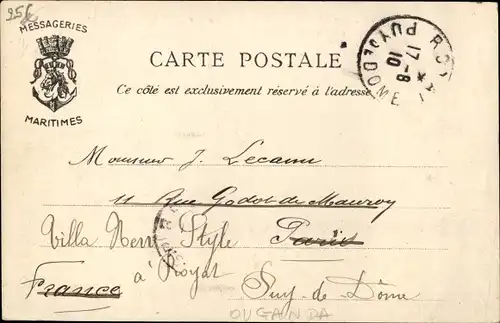 256
MESSAGERIES
MARITIMES
CARTE POSTALE
Ce côté est exclusivement réservé à l'adresse
ROYAT
17-8
10
PUY DE DOME
Monsieur J. Lecamu
11 Rue Godot de Mauroy
Villa New Style Paris
France à Royat
Puy-de-Dôme
OUGANDA